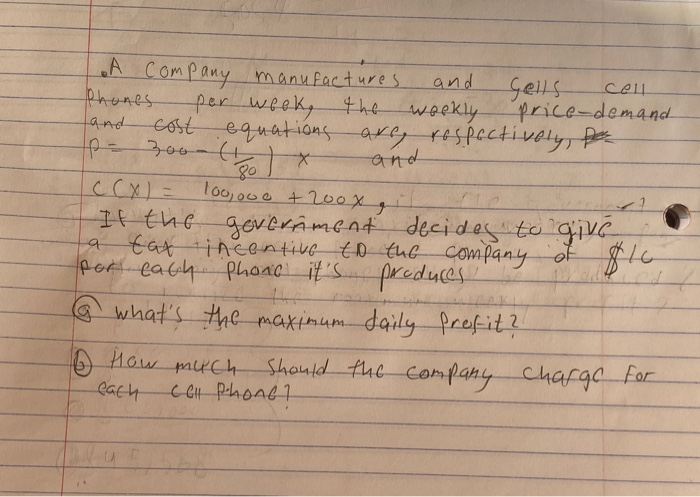 .A company manufactures and sells cell
Phones per week, the weekly price-demand
and cost equations are, respectively,
P = 300 - (1/80) x and
C(X) = 100,000 + 200x,
If the government decides to give
a tax incentive to the company of
per each phone it's produces
(a) what's the maximum daily Profit?
(b) How much should the company charge for
each cell phone?